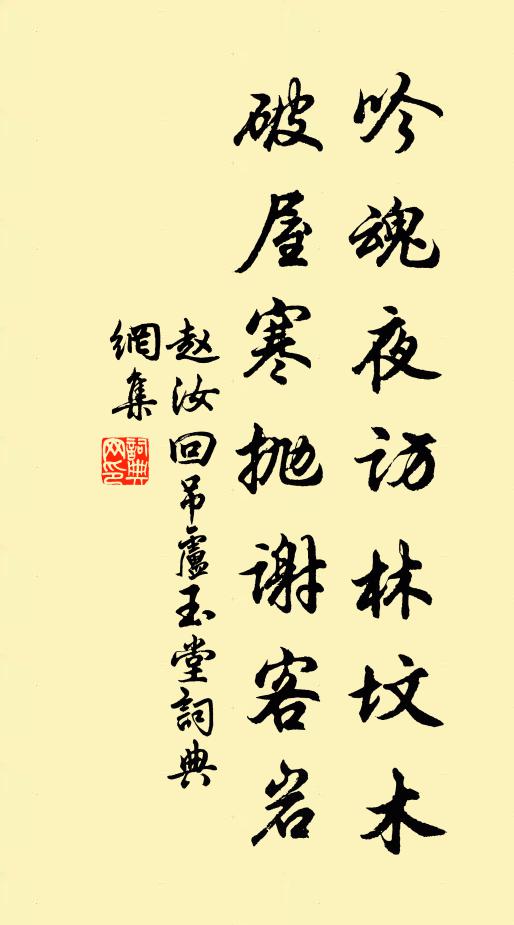 吟魂夜访林坟木
破屋寒抛谢客岩
赵汝回吊盧玉堂詞典
網集
詞典
网印